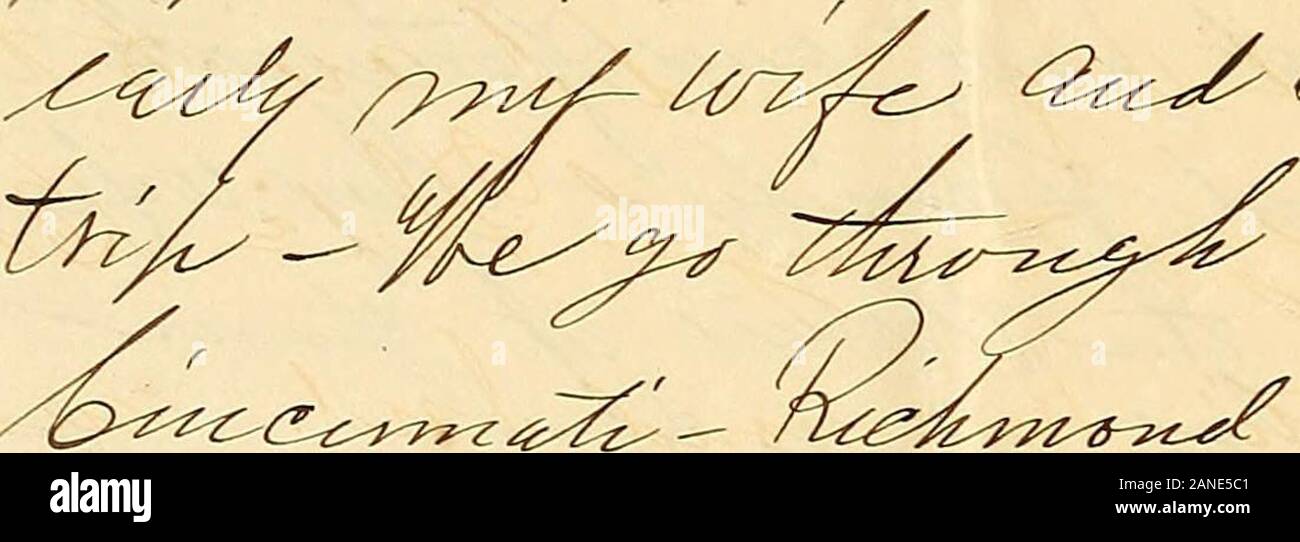 early my wife and
trip - We go through
Cincinnati - Richmond
alamy
Image ID: 2ANE5C1
www.alamy.com